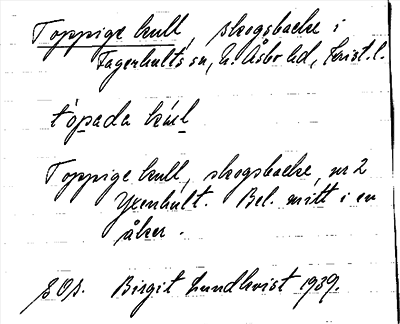 Toppige kull, skogsbacke i
Fagerhults sn, N. Åsbo hd, Krist. l.
tòpada kúl
Toppige kull, skogsbacke, nr 2
Yxenhult. Bel. mitt i en
åker.
Birgit Lundkvist 1939.